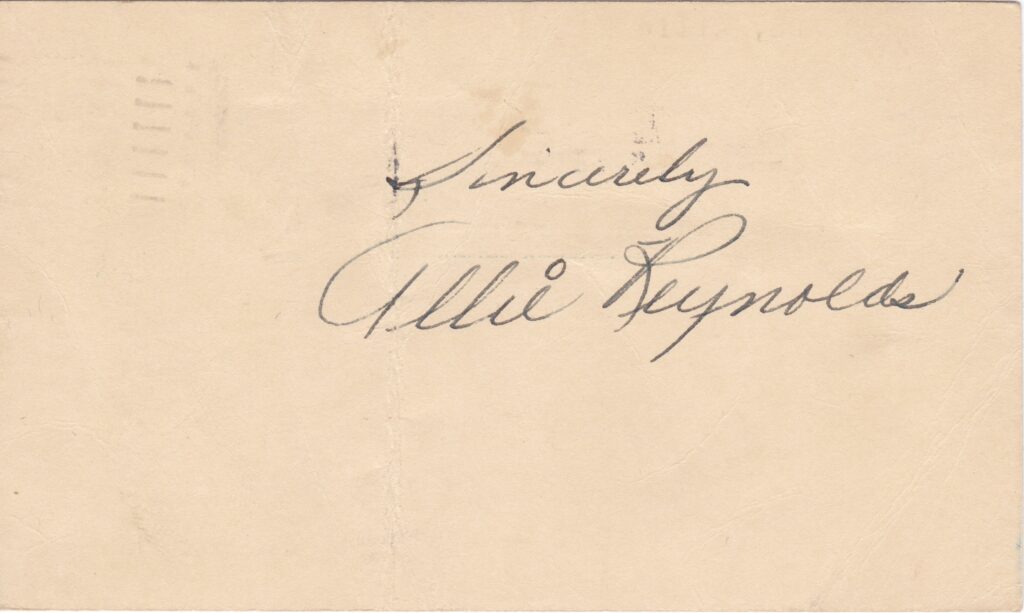 Sincerely
Allie Reynolds